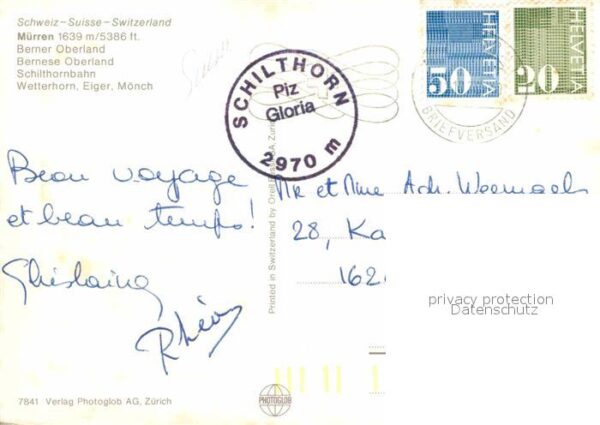 Schweiz-Suisse-Switzerland
Mürren 1639 m/5386 ft.
Berner Oberland
Bernese Oberland
Schilthornbahn
Wetterhorn, Eiger, Mönch
SCHILTHORN
Piz
Gloria
2970 m
50 HELVETIA
20 HELVETIA
BRIEFVERSAND
Beau voyage
et beau temps!
Ghislaine
Mr et Mme Adr.
28, Ka
162
privacy protection
Datenschutz
Printed in Switzerland by Orell Füssli SA, Zürich
7841 Verlag Photoglob AG, Zürich
PHOTOGLOB